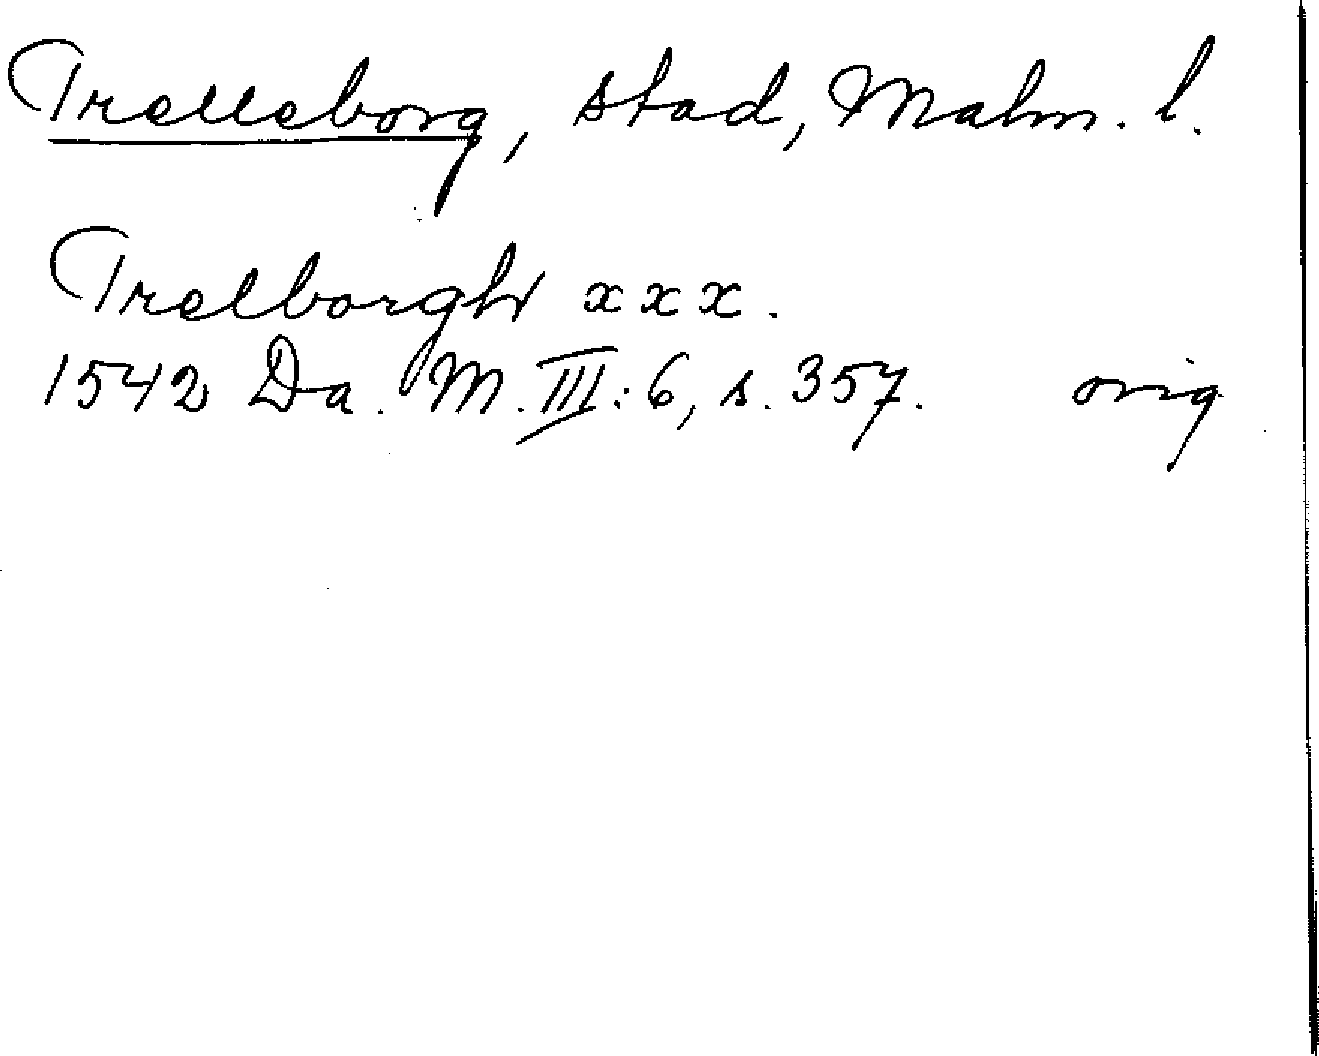 Trelleborg, stad, Malm. l.
Trelborgh xxx.
1542 Da. M. III: 6, s. 357. orig